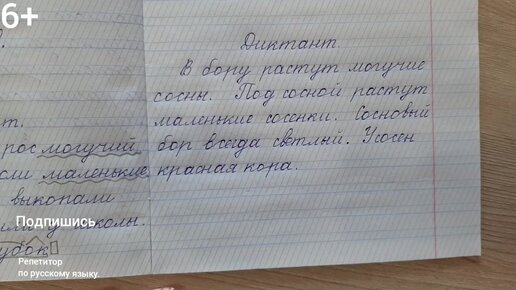 6+
Диктант.
В бору растут могучие
сосны. Под сосной растут
маленькие сосенки. Сосновый
бор всегда светлый. У сосен
красная кора.
т.
рос могучий
маленькие
выкопали
школы.
Подпишись
Репетитор
по русскому языку.